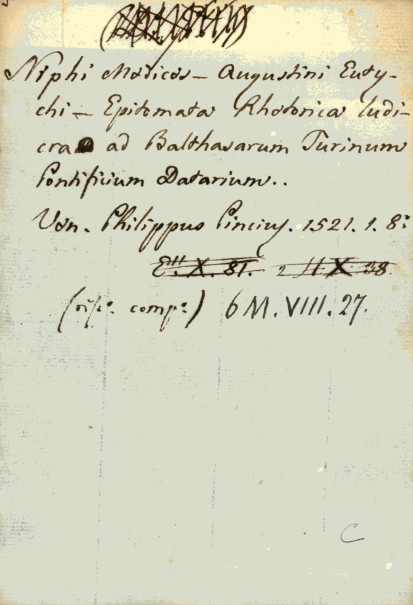 Niphi Medices – Augustini Euty-
chi – Epitomata Rhetorica ludi-
cra ad Balthasarum Turinum
Pontificium Datarium..
Ven. Philippus Pincius. 1521. 1. 8:
E". X. 81. 2 II X 38
comp: ) 6 M. VIII. 27.
C